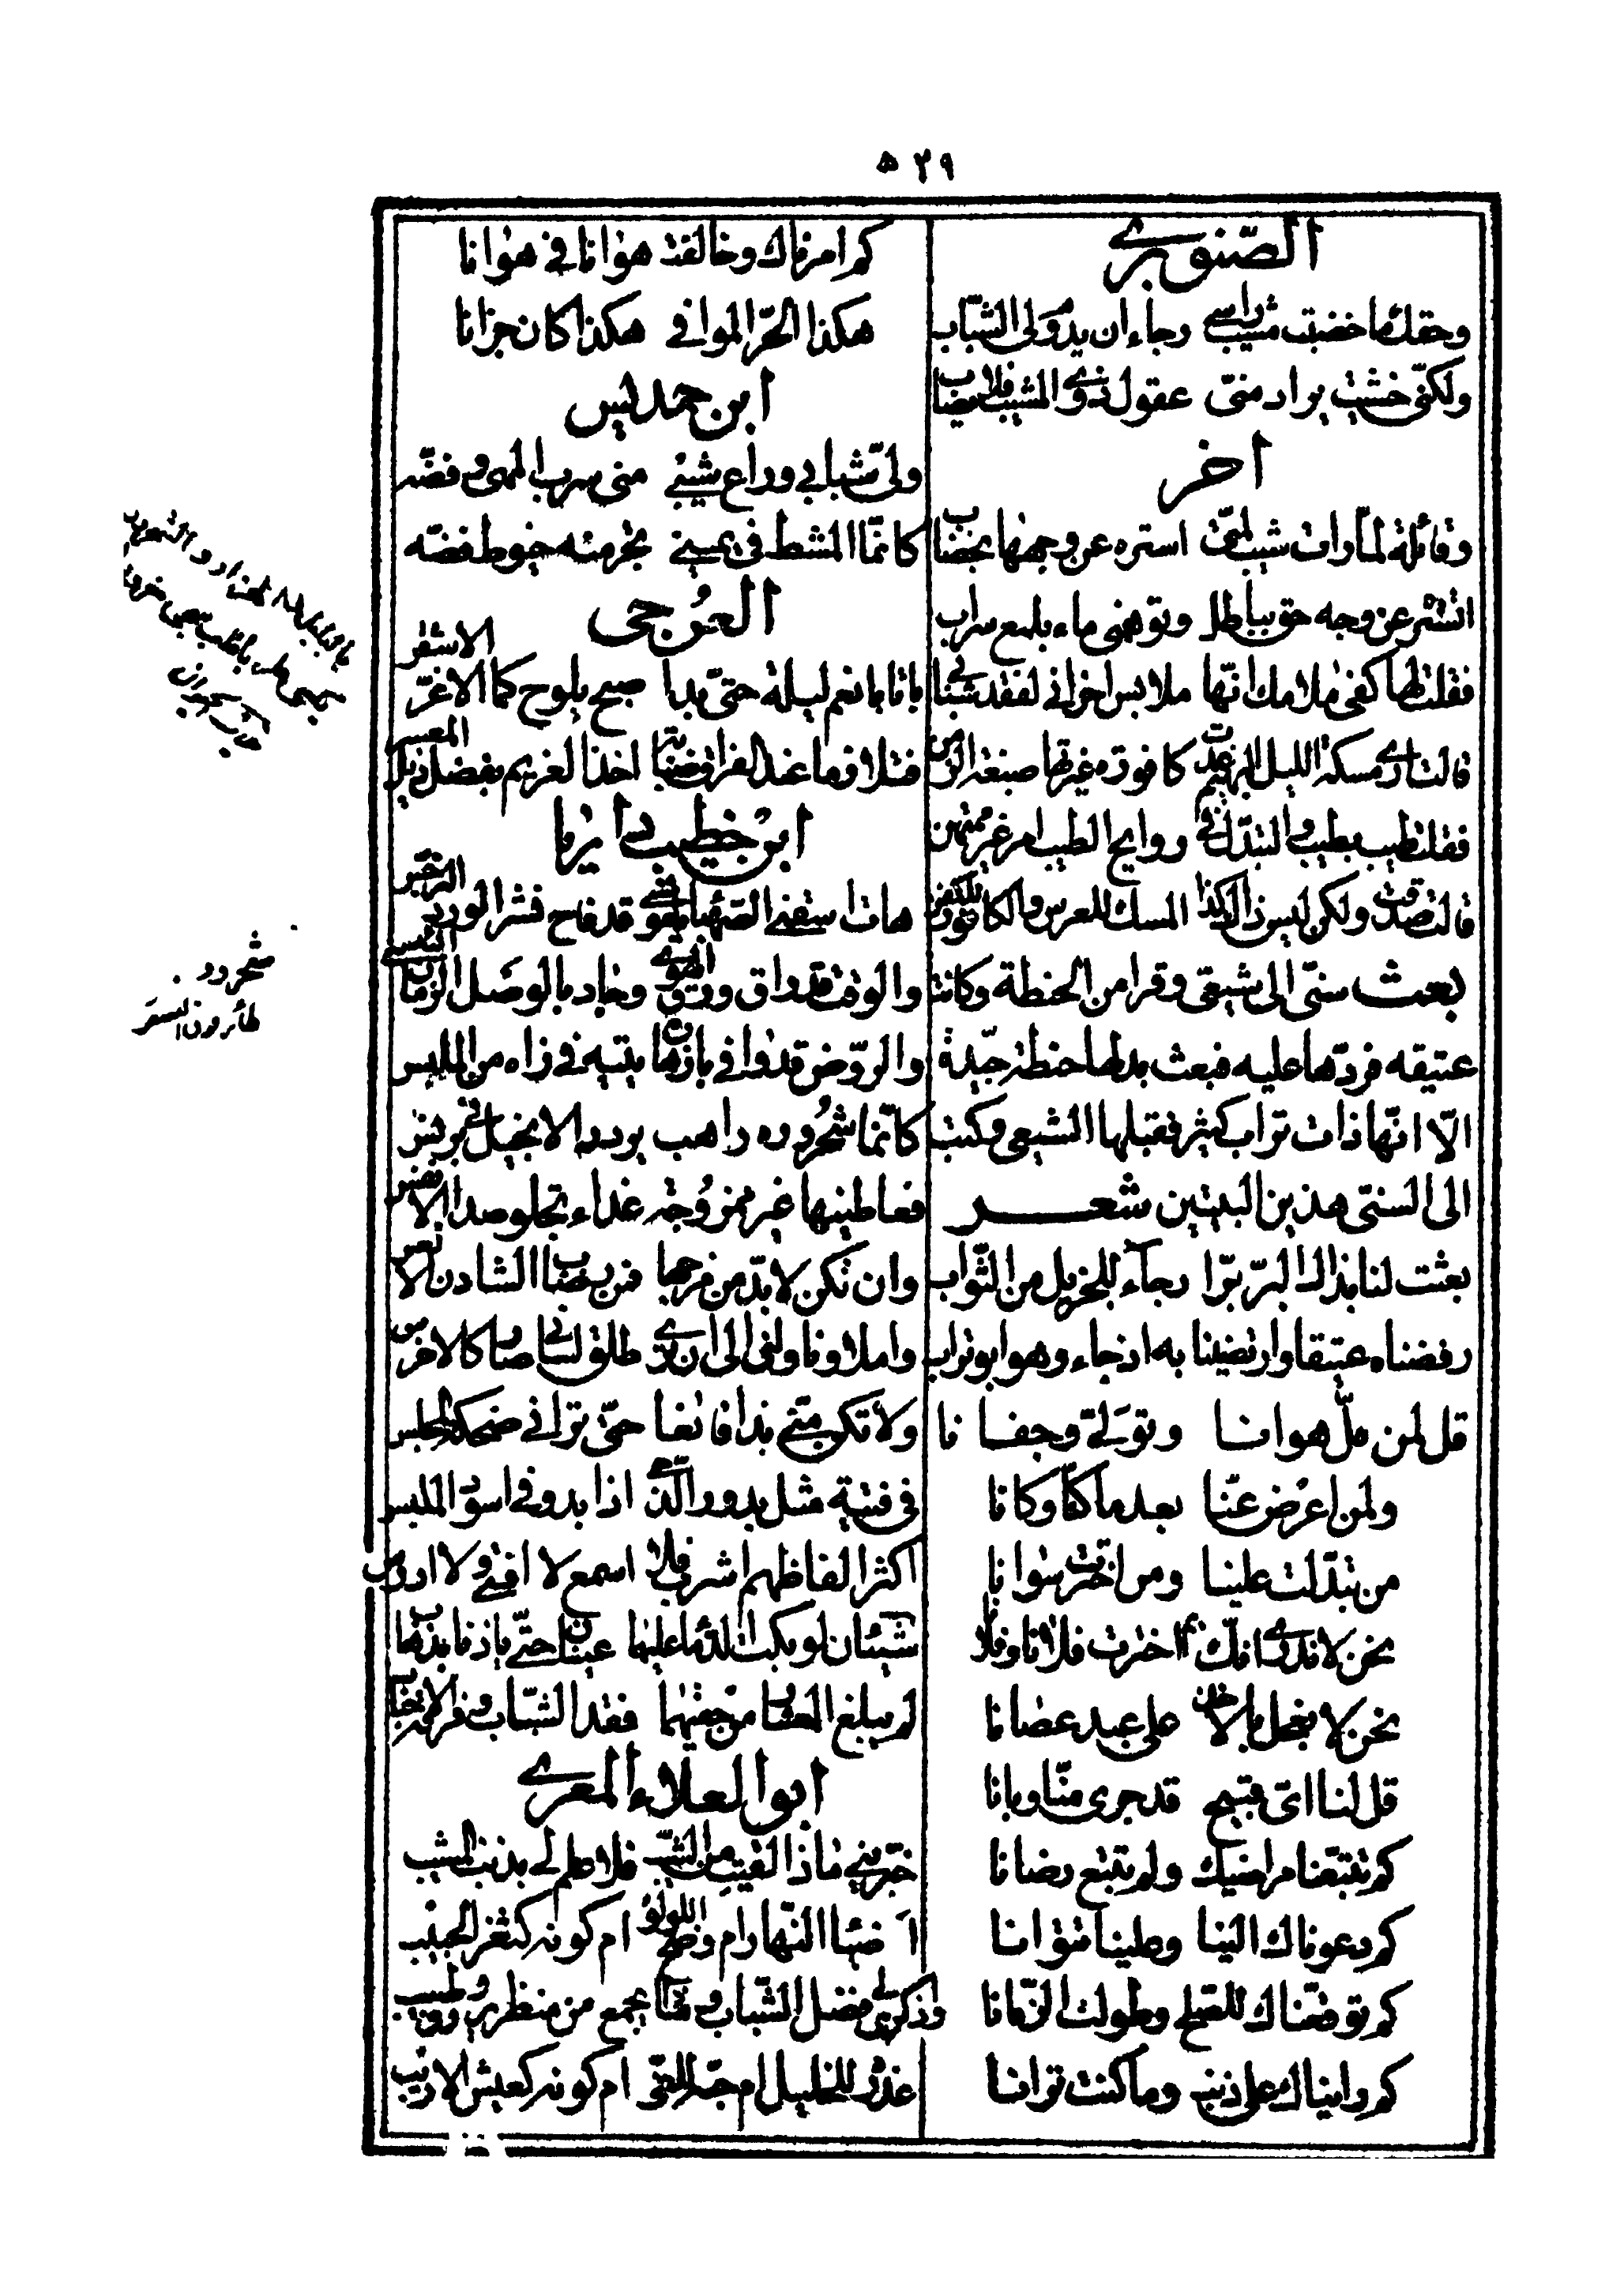 ٥٢٩
الصّنوبري
وحقك ما خضبت مشيب راسي رجاء ان يدوم لى الشباب
ولكنّى خشيت يراد منّى عقول ذوي المشيب فلا يصاب
اخر
وقائلة لمّا رات شيب لمّتى استره عن وجهها بخضاب
اتستر عن وجه حق بباطل وتوهمنى ماء بلمع سراب
فقلت لها كفى ملامك انّها ملابس احزانى لفقد شبابى
قالت ارى مسكة الليل البهيم غدت كافورة غيرتها صبغة الزمن
فقلت طيب بطيب والتبدّل فى روايح الطيب امر غير ممتهن
قالت صدقت ولكن ليس ذاك كذا المسك للعرس والكافور للكفن
بعث سنّى الى شيعى وقرا من الحنطة وكانت
عتيقه فردّها عليه فبعث بدلها حنطة جيّدة
الّا انّها ذات تراب كثير فقبلها الشيعى وكتب
الى السنّى هذين البيتين شعر
بعثت لنا بذاك البرّ برّا رجاء للجزيل من الثّواب
رفضناه عتيقا وارتضينا به اذ جاء وهو ابو تراب
قل لمن ملّ هوانا وتولّى وجفانا
ولمن اعرض عنّا بعد ما كنّا وكانا
من تبدّلت علينا ومن اخترت سوانا
نحن لا ندرى انك اخترت فلانا وفلانا
نحن لا نعجل بالاخذ على عبد عصانا
قل لنا اىّ قبيح قد جرى منّا وبانا
كم تتبّعنا مراضيك ولم تتبع رضانا
كم دعوناك الينا وطلبنا متوانا
كم توقّعناك للصّلح وطولت الزّمانا
كم رايناك على ذنب وما كنت ترانا
كم امرناك وخالفت هوانا فى هوانا
هكذا الحرّ الموافى هكذا كان جزانا
ابن حمديس
ولّى شبابى وراع شيبى منى سرب المهى وفضّه
كانّما المشط فى يمينى يجر منه خيوط فضّه
العرجى
باتا بانعم ليلة حتّى بدا صبح يلوح كما الاغرّ الاشقر
فتلازما عند الفراق صبابة اخذ الغريم بفضل ذيل المعسر
ابن خطيب داريا
هات اسقنى الصّهبا يا مؤنسى قد فاح نشر الورد والنرجس
والوقت قد راق ورقّ الهوى وجاد بالوصل الزمان المسى
والرّوض قد وافى بازهاره يتيه فى زاه من الملبس
كانّما شحروره راهب يردد الانجيل فى برنس
فعاطنيها غير ممزوجة غداء تجلو صدا الانفس
وان تكن لا بدّ من مزجها فمن رضاب الشادن الالعس
واملا وناولنى الى ان ترى طلق لسانى صار كالاخرس
ولا تكن منّى بذا قانعا حتّى ترانى ضحكة المجلس
فى فتية مثل بدور الدّجى اذا بدو فى اسود الملبس
اكثر الفاظهم اشرب فلان اسمع لا افتى ولا ادرس
شيئان لو بكت الدّما عليهما عيناى حتّى ياذنا بذهاب
لم يبلغ المعشار من حقيهما فقد الشّباب وفرقة الاحباب
ابو العلاء المعري
خبّرينى ماذا لقيت من الشيب فلا علم لى بذنب المشيب
اضياء النّهار ام وضح اللؤلؤ ام كونه كثغر الحبيب
واذكرى لى فضل الشّباب وما يجمع من منظر يروق وطيب
غدره للخليل ام حبّه للغى ام كونه كعيش الاريب
شحرور
طائر دون السقر